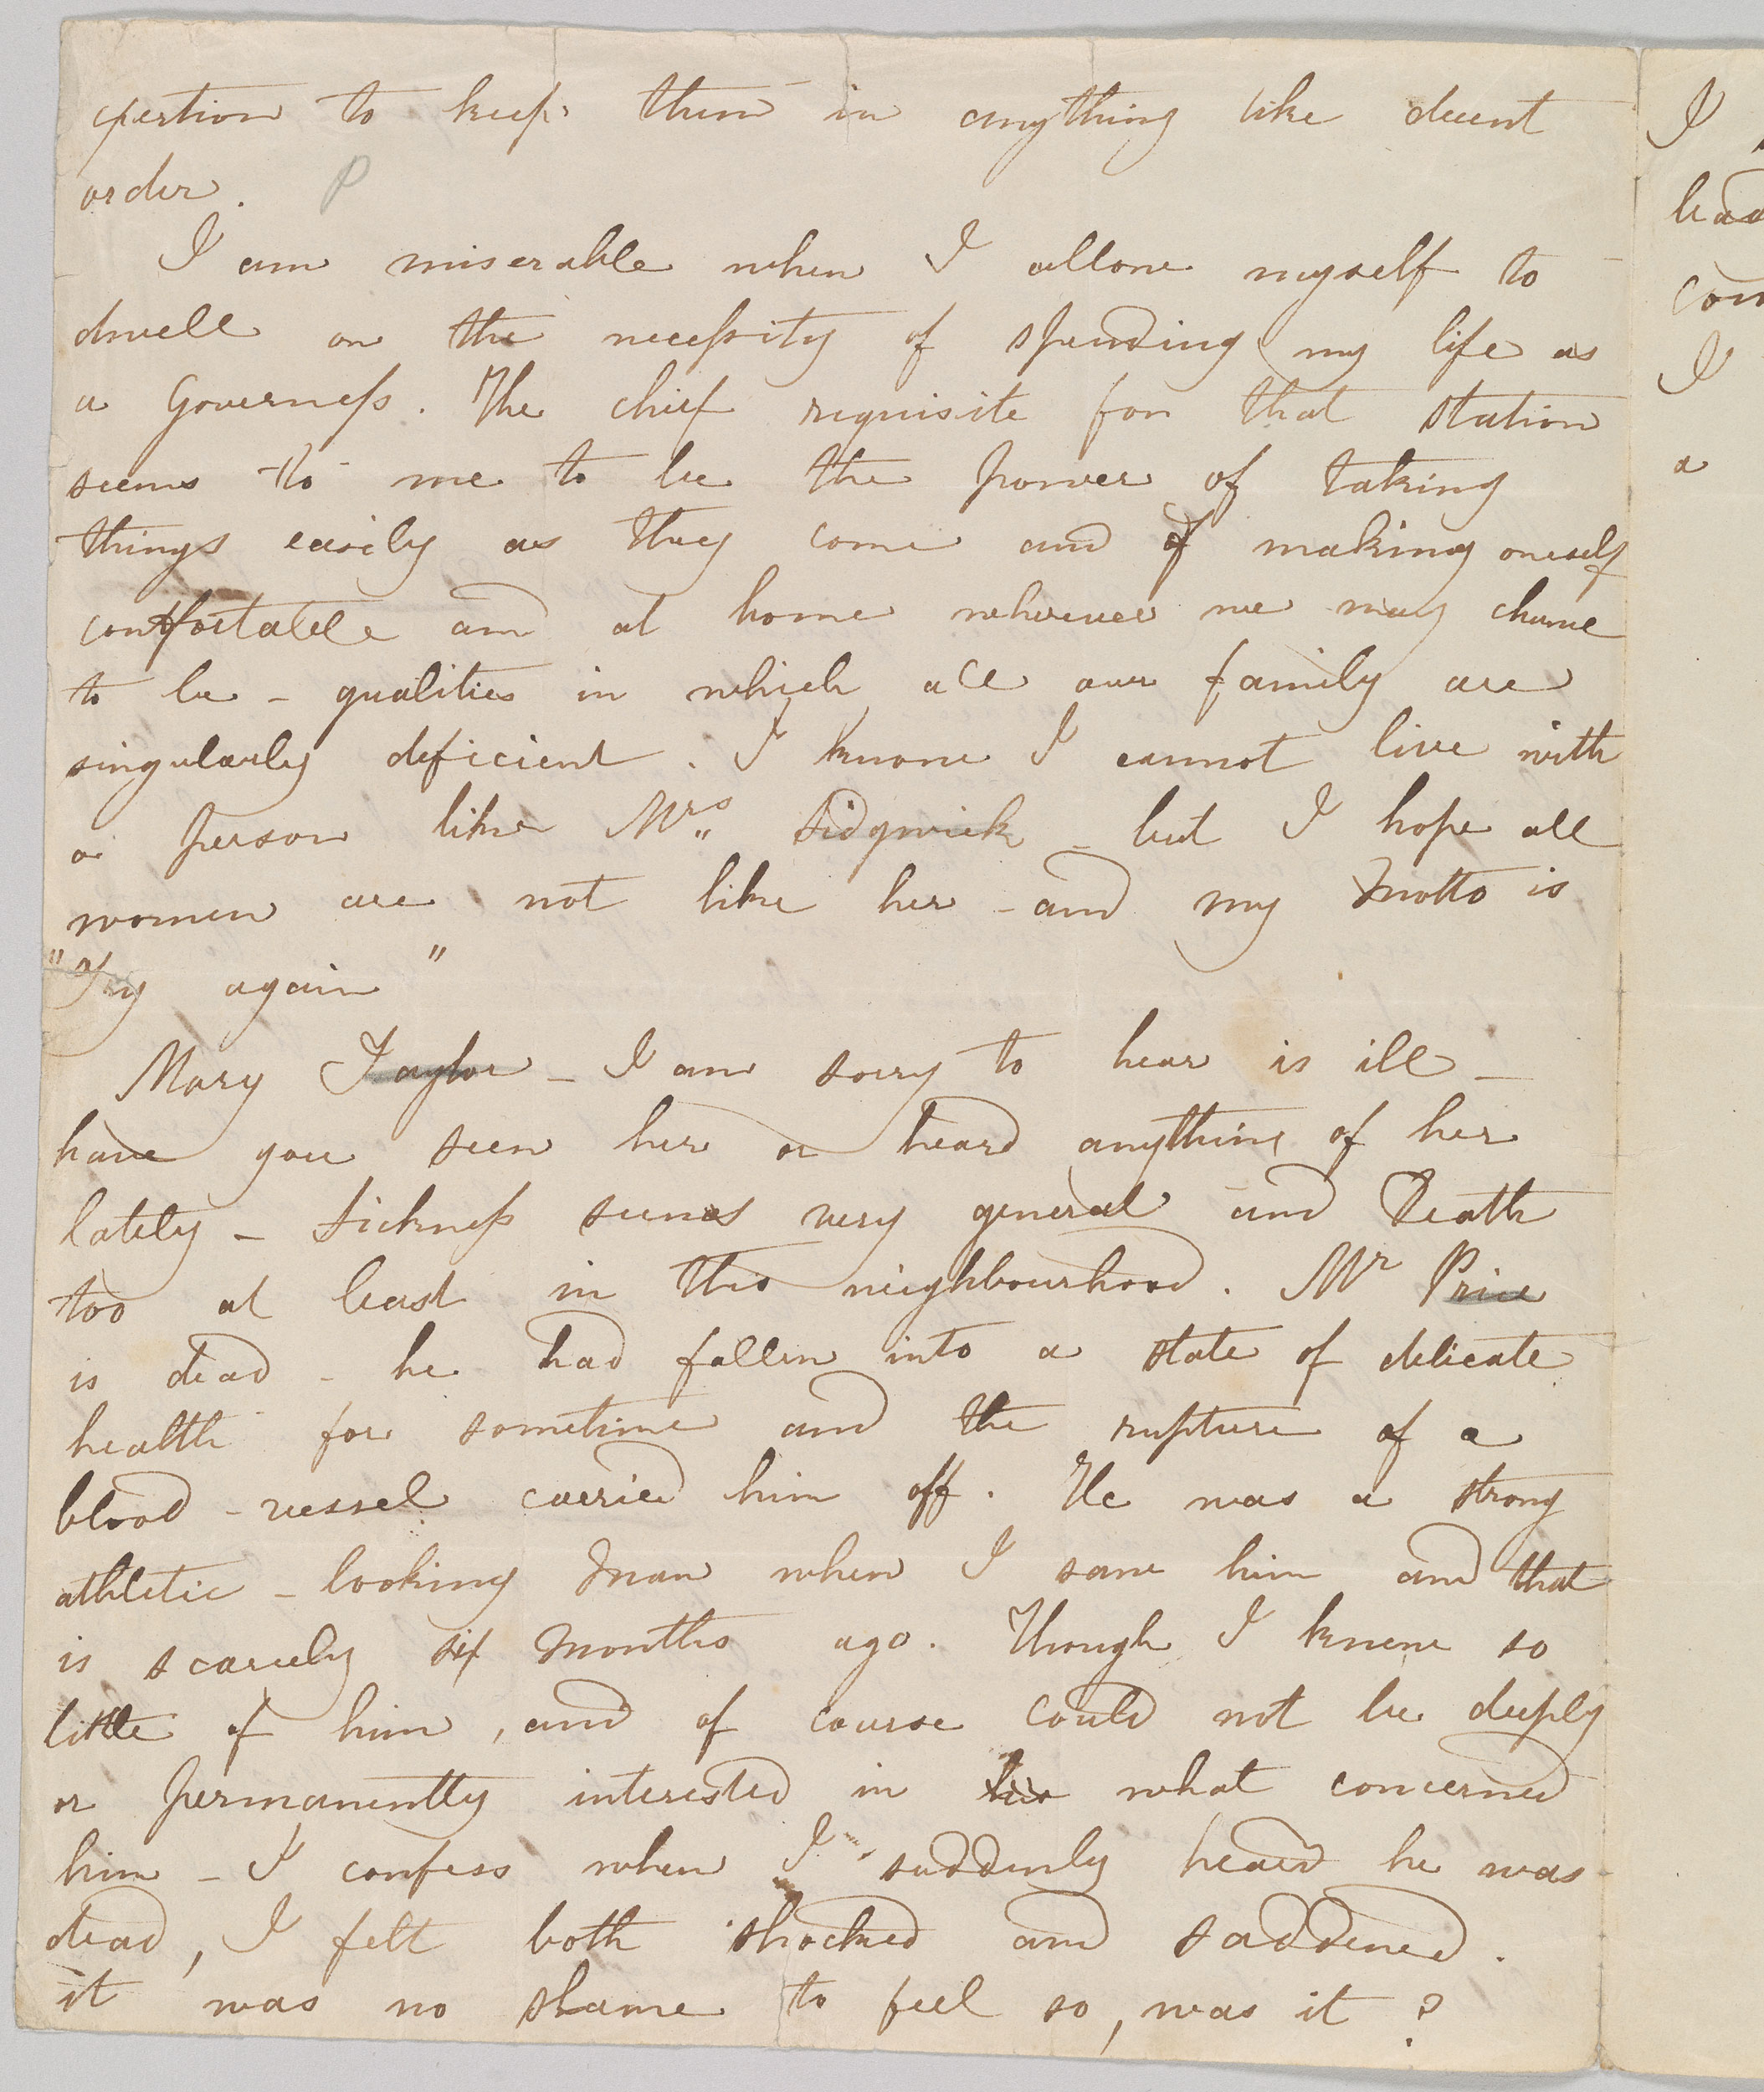 exertion to keep them in anything like decent
order. P
I am miserable when I allow myself to
dwell on the necessity of spending my life as
a Governess. The chief requisite for that station
seems to me to be the power of taking
things easily as they come and of making oneself
comfortable and at home wherever we may chance
to be - qualities in which all our family are
singularly deficient. I know I cannot live with
a person like Mrs Sidgwick - but I hope all
women are not like her - and my motto is
"Try again"
Mary Taylor - I am sorry to hear is ill -
have you seen her or heard anything of her
lately - Sickness seems very general and Death
too at least in this neighbourhood. Mr Price
is dead - he had fallen into a state of delicate
health for sometime and the rupture of a
blood-vessel carried him off. He was a strong
athletic-looking man when I saw him and that
is scarcely six months ago. Though I knew so
little of him, and of course could not be deeply
or permanently interested in his what concerned
him - I confess when I suddenly heard he was
dead, I felt both shocked and saddened.
it was no shame to feel so, was it?
I
I
a